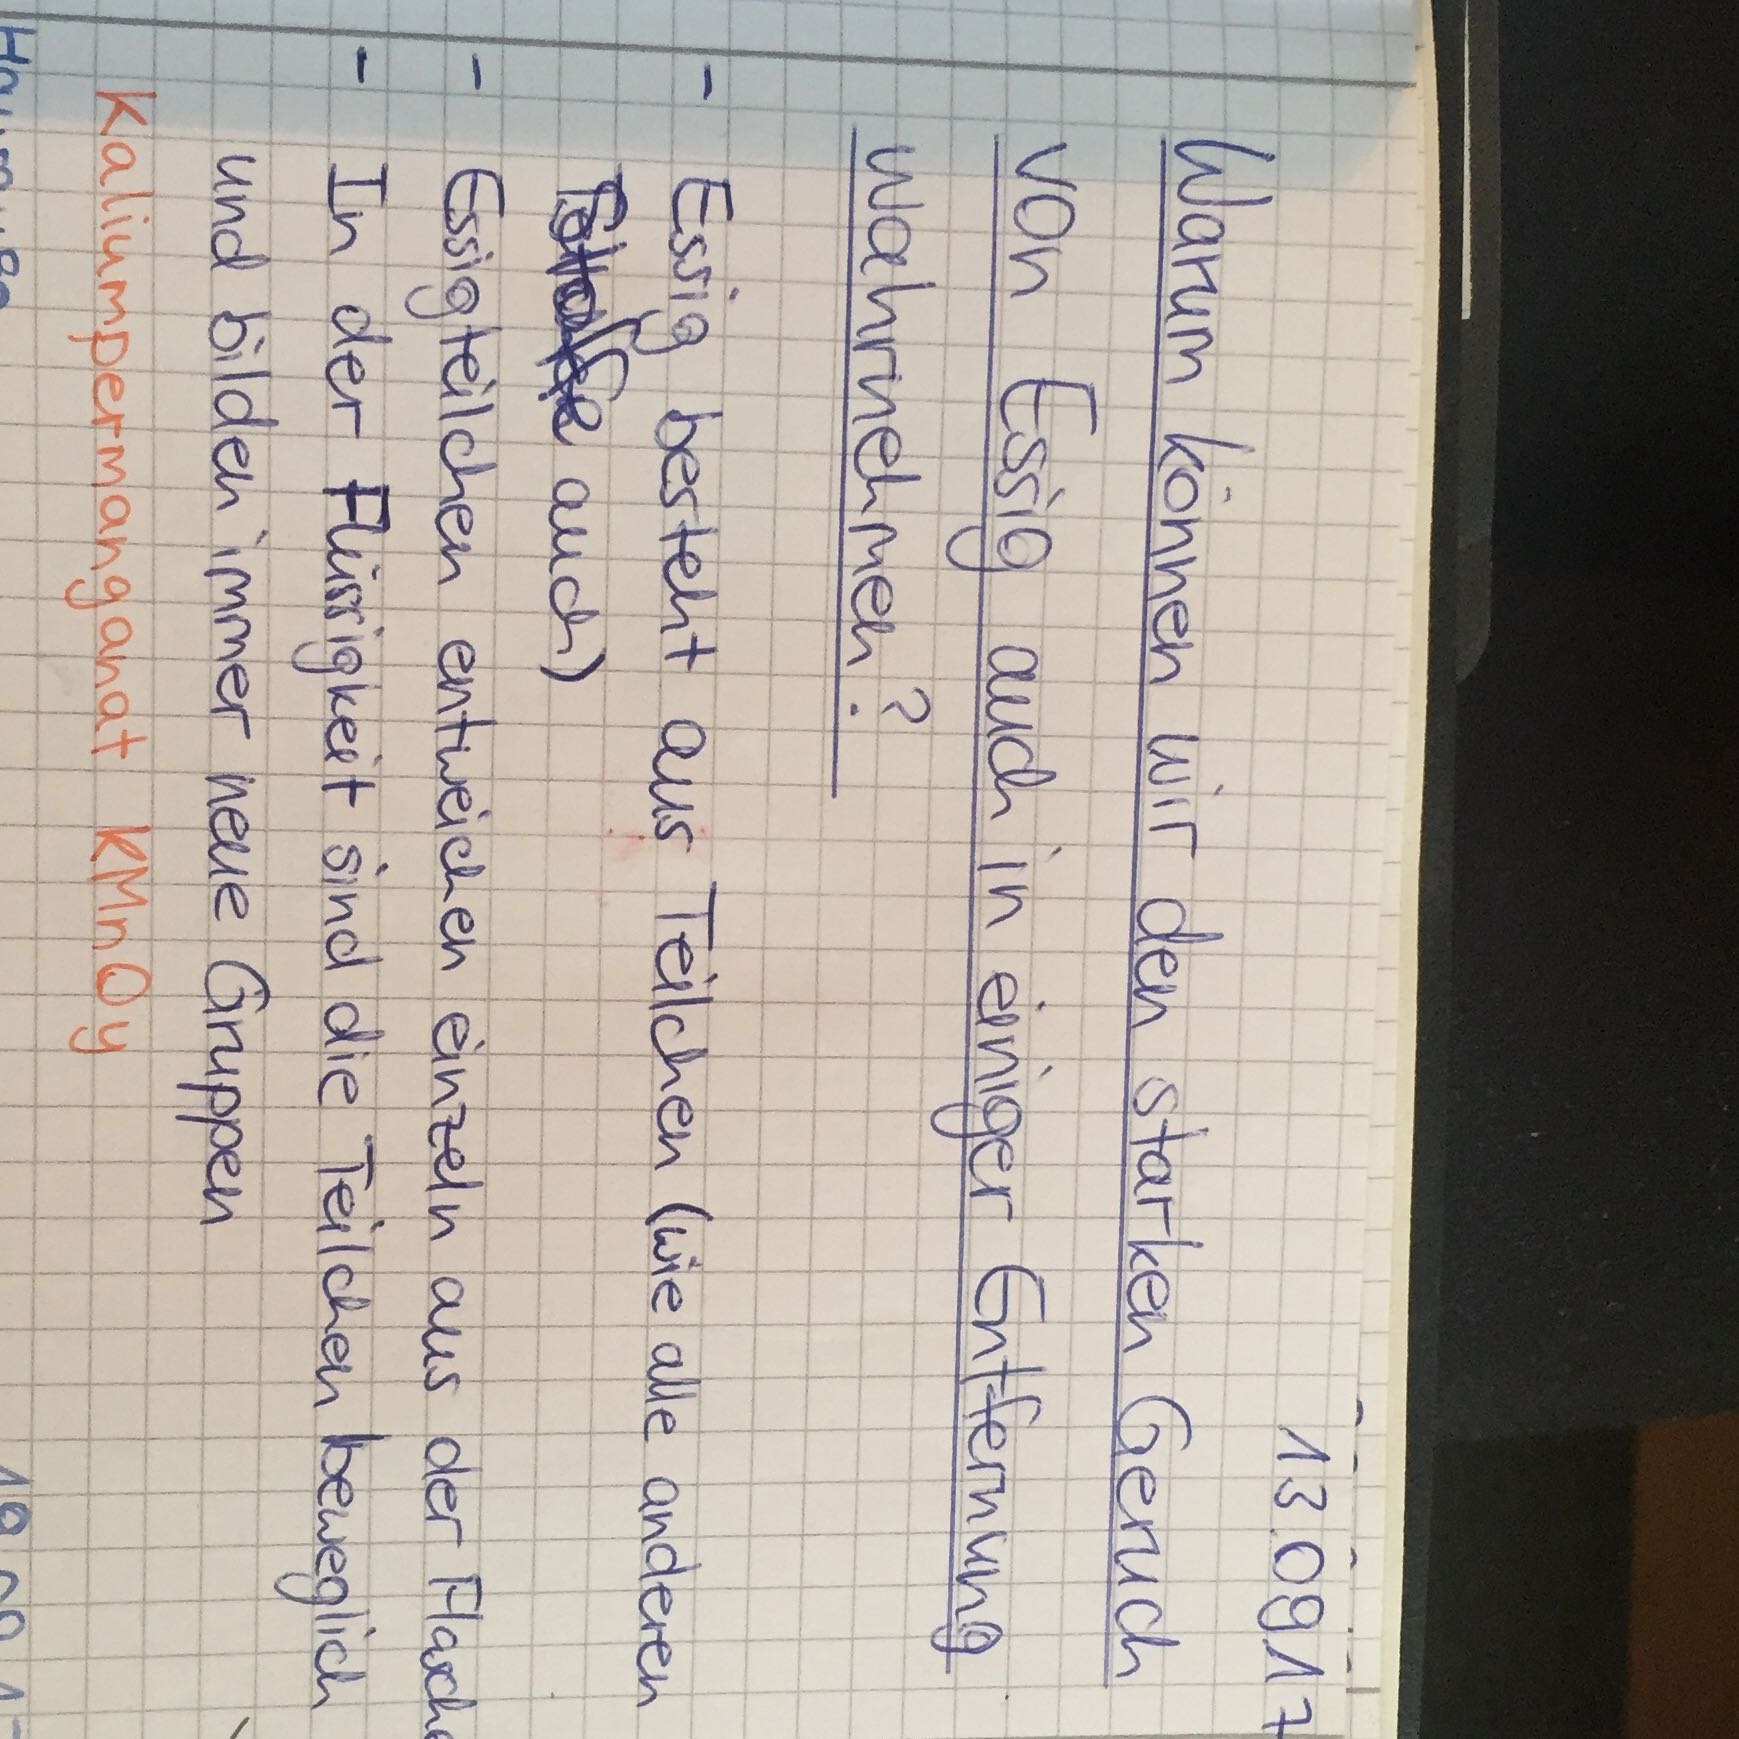 13.09.17
Warum können wir den starken Geruch
von Essig auch in einiger Entfernung
wahrnehmen?
- Essig besteht aus Teilchen (wie alle anderen
auch)
- Essigteilchen entweichen einzeln aus der Flasche
- In der Flüssigkeit sind die Teilchen beweglich
und bilden immer neue Gruppen
Kaliumpermanganat KMnOy